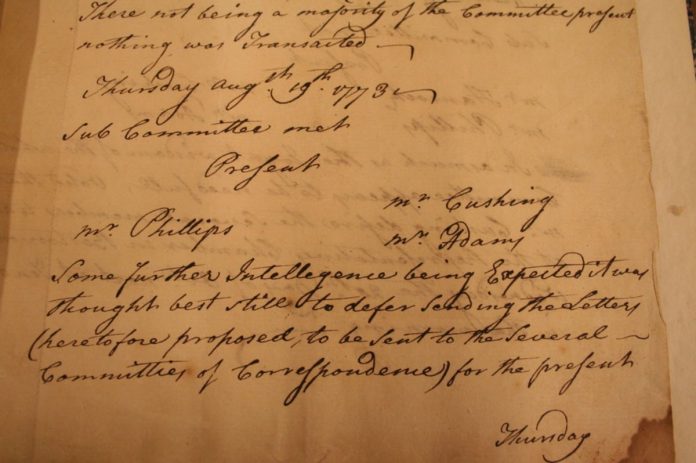 There not being a majority of the Committee present
nothing was Transacted
Thursday Augth. 19th. 1773
Sub Committee met
Present
mr Cushing
mr Phillips
mr Adams
Some further Intellegence being Expected it was
thought best still to defer sending the Letters
(heretofore proposed, to be sent to the Several
Committies of Correspondence) for the present
Thursday